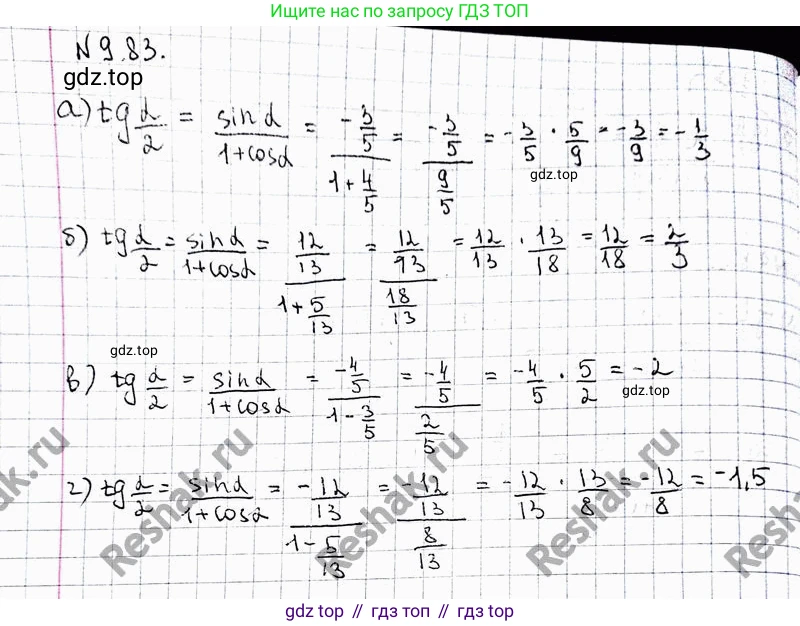 Ищите нас по запросу ГДЗ ТОП
N 9.83.
gdz.top
а) tg α/2 = sinα/(1+cosα) = (-3/5)/(1+4/5) = (-3/5)/(9/5) = -3/5 · 5/9 = -3/9 = -1/3
gdz.top
б) tg α/2 = sinα/(1+cosα) = (12/13)/(1+5/13) = (12/93)/(18/13) = 12/13 · 13/18 = 12/18 = 2/3
gdz.top
в) tg α/2 = sinα/(1+cosα) = (-4/5)/(1-3/5) = (-4/5)/(2/5) = -4/5 · 5/2 = -2
gdz.top
г) tg α/2 = sinα/(1+cosα) = (-12/13)/(1-5/13) = (-12/13)/(8/13) = -12/13 · 13/8 = -12/8 = -1,5
Reshak.ru
Reshak.ru
Reshak.ru
Reshak.ru
gdz top // гдз топ // гдз top